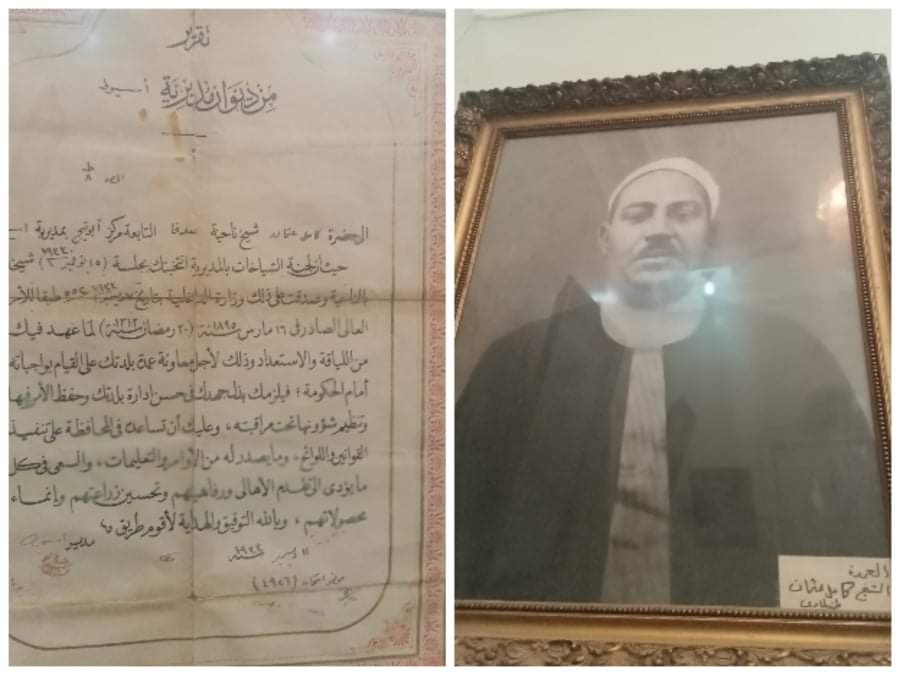 تقرير
من ديوان مديرية أسيوط
الى حضرة كامل عثمان شيخ ناحية صدفا التابعة مركز أبوتيج بمديرية
حيث ان لجنة الشياخات بالمديرية انتخبتك بجلسة (١٥ نوفمبر ) شيخ
بالناحية وصدقت على ذلك وزارة الداخلية بتاريخ طبقا للأمر
العالى الصادر فى ١٦ مارس سنة ١٨٩٥ (٢٠ رمضان سنة ١٣١٢) لما عهد فيك
من اللياقة والاستعداد وذلك لأجل معاونة عمدة بلدتك على القيام بواجباته
أمام الحكومة ؛ فيلزمك بذل جهدك فى حسن ادارة بلدتك وحفظ الأمن فيها
وتنظيم شؤونها تحت مراقبته ، وعليك أن تساعده فى المحافظة على تنفيذ
القوانين واللوائح ، وما يصدر له من الأوامر والتعليمات ، والسعى فى كل
ما يؤدى الى تقدم الأهالى ورفاهيتهم وتحسين زراعتهم وإنماء
محصولاتهم ، وبالله التوفيق والهداية لأقوم طريق
مدير
(٤٩٢٦)
العمدة
الشيخ كامل عثمان